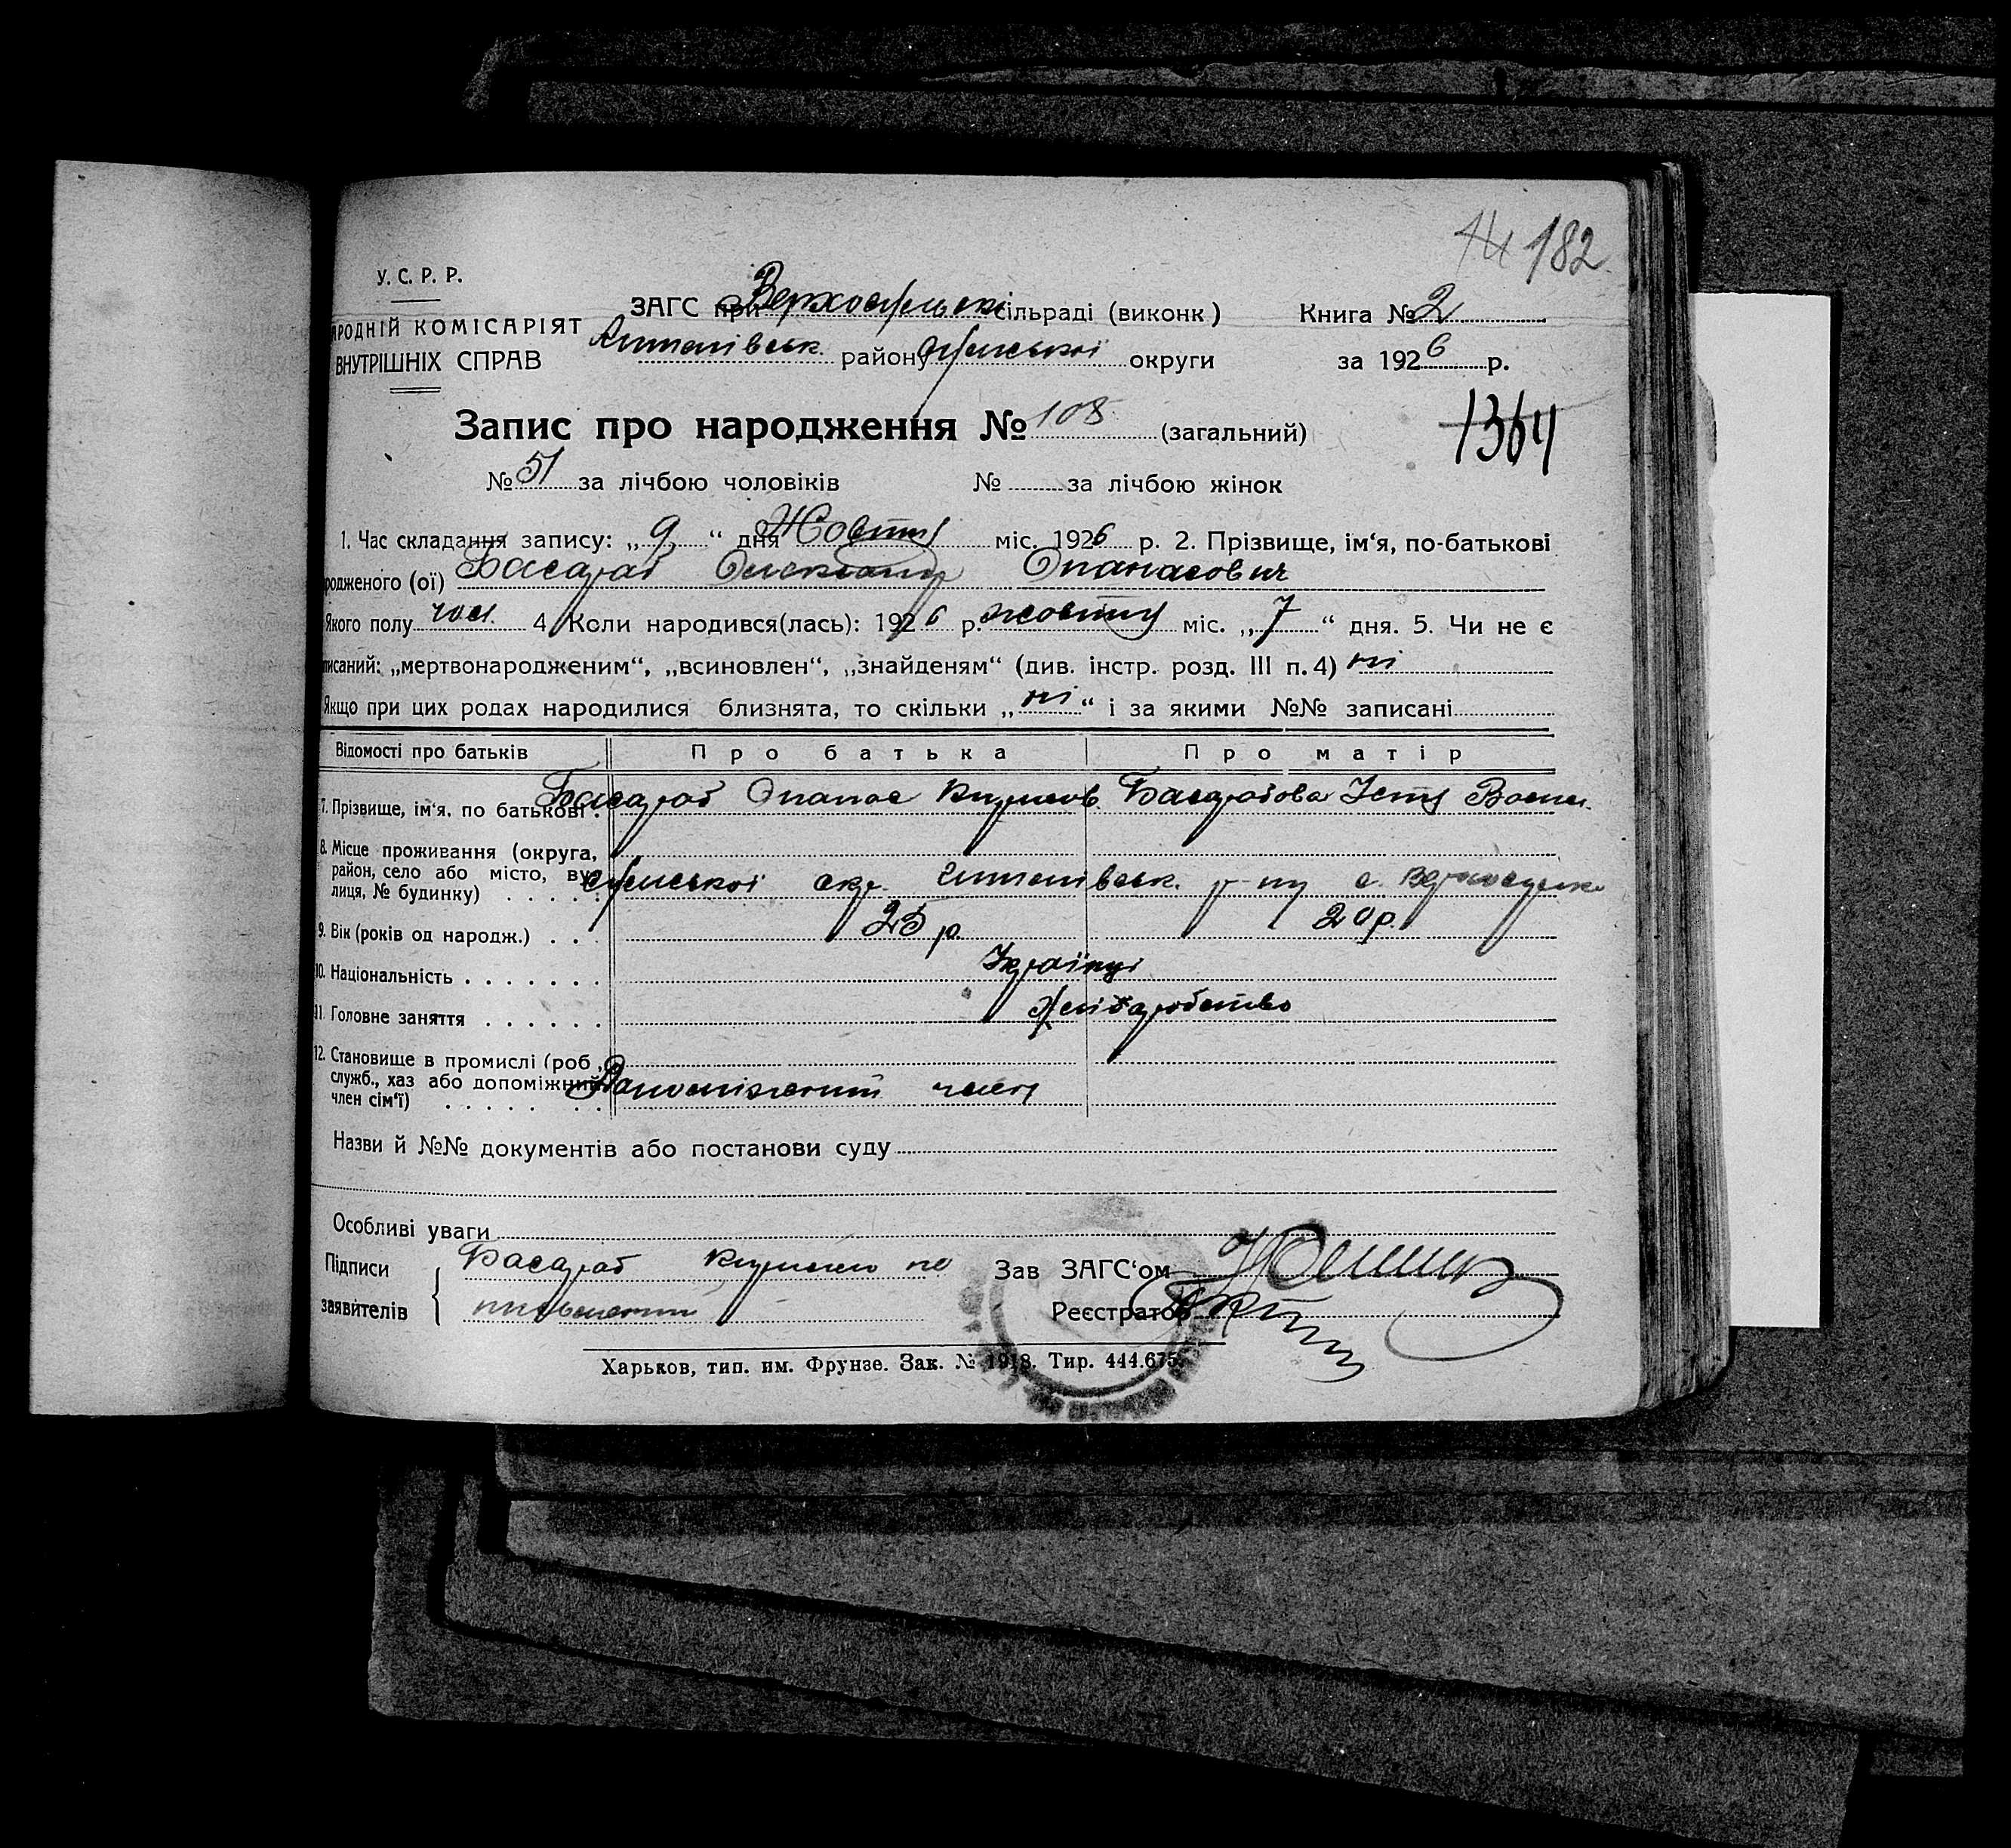 182
У. С. Р. Р.
ЗАГС при Верхосульск сільраді (виконк) Книга № 2
АРОДНІЙ КОМІСАРІЯТ
ВНУТРІШНІХ СПРАВ
району Сумської округи за 1926 р.
1364
Запис про народження № 108 (загальний)
№ 51 за лічбою чоловіків № за лічбою жінок
1. Час складання запису: „9“ дня Жовтня міс. 1926 р. 2. Прізвище, ім‘я, по-батькові
родженого (ої) Басараб Олександр Опанасович
Якого полу чол. 4. Коли народився(лась): 1926 р. жовтня міс. „7“ дня. 5. Чи не є
писаний: „мертвонародженим“, „всиновлен“, „знайденям“ (див. інстр. розд. III п. 4) ні
Якщо при цих родах народилися близнята, то скільки „ні“ і за якими №№ записані
Відомості про батьків Про батька Про матір
7. Прізвище, ім‘я, по батькові . Басараб Опанас Кирилов. Басарабова Устя Васил.
8. Місце проживання (округа,
район, село або місто, ву-
лиця, № будинку) . . . . . Сумської окр. р-ну с.
9. Вік (років од народж.) . . . 25 р. 20 р.
10. Національність . . . . . . . Українці
11. Головне заняття . . . . . . Хліборобство
12. Становище в промислі (роб.,
служб., хаз або допоміжний
член сім‘ї) . . . . . . . Допоміжний член
Назви й №№ документів або постанови суду
Особливі уваги
Підписи Басараб Кирило не Зав ЗАГС‘ом
заявителів письменний Реєстратор
Харьков, тип. им. Фрунзе. Зак. № 1918. Тир. 444.675.